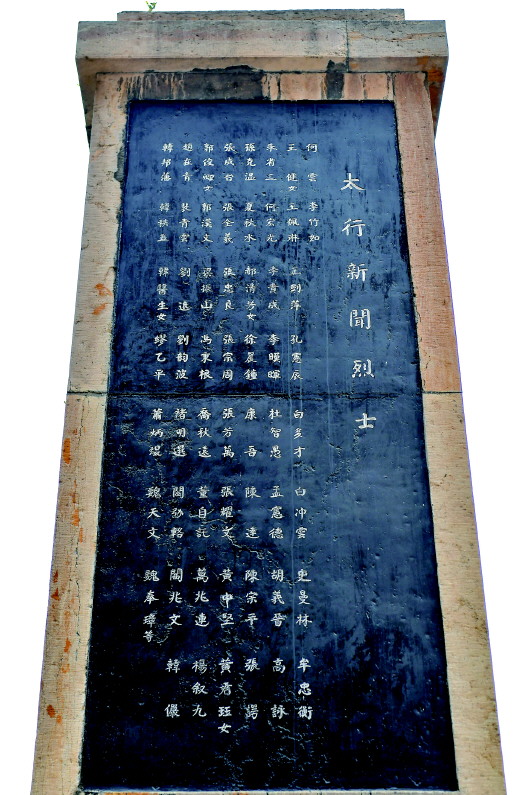 太行新聞烈士
何雲 李竹如 列萍 孔憲辰 白多才 白冲雲 史曼林 牟忠衡
王健女 王珮琳 李貴成 李暎暉 杜智愚 孟憲德 胡義晉 高詠
朱省三 何宏光 郝清芳女 徐晨鐘 康吾 陳達 陳宗平 張諤
孫克溫 夏秋水 張忠良 張宗周 張芳萬 張耀文 黃中堅 黃君珏女
張成台 張全義 梁振山 高東根 喬秋遠 董自託 萬兆連 楊叙九
郭俊卿女 郭漢文 劉遠 劉韵波 褚明選 閻勁韜 閻兆文 韓儀
趙在青 裴青雲 韓醫生女 繆乙平 蕭炳焜 魏天文 魏奉璋等
韓邦藩 韓秩五